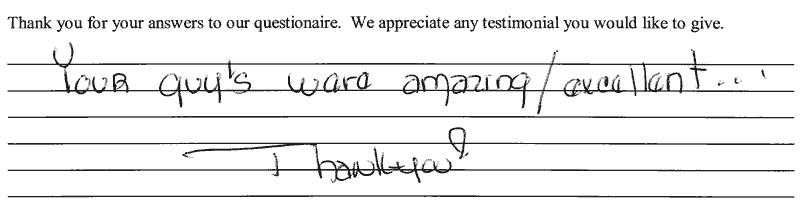 Thank you for your answers to our questionaire. We appreciate any testimonial you would like to give.
Your guy's ware amazing/excellant...
Thankyou!